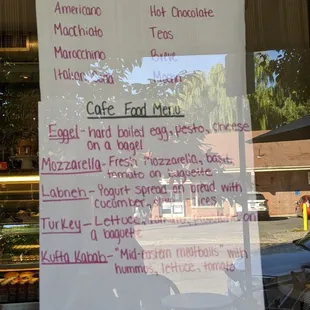 Americano Hot Chocolate
Macchiato Teas
Marocchino Breve
Italian Mocha
Cafe Food Menu
Eggel - hard boiled egg, pesto, cheese
on a bagel
Mozzarella - Fresh Mozzarella, basil,
tomato on baguette
Labneh - Yogurt spread on bread with
cucumber, olive slices
Turkey - Lettuce, on
a baguette
Kufta Kabab - "Mid-eastern meatballs" with
hummus, lettuce, tomato